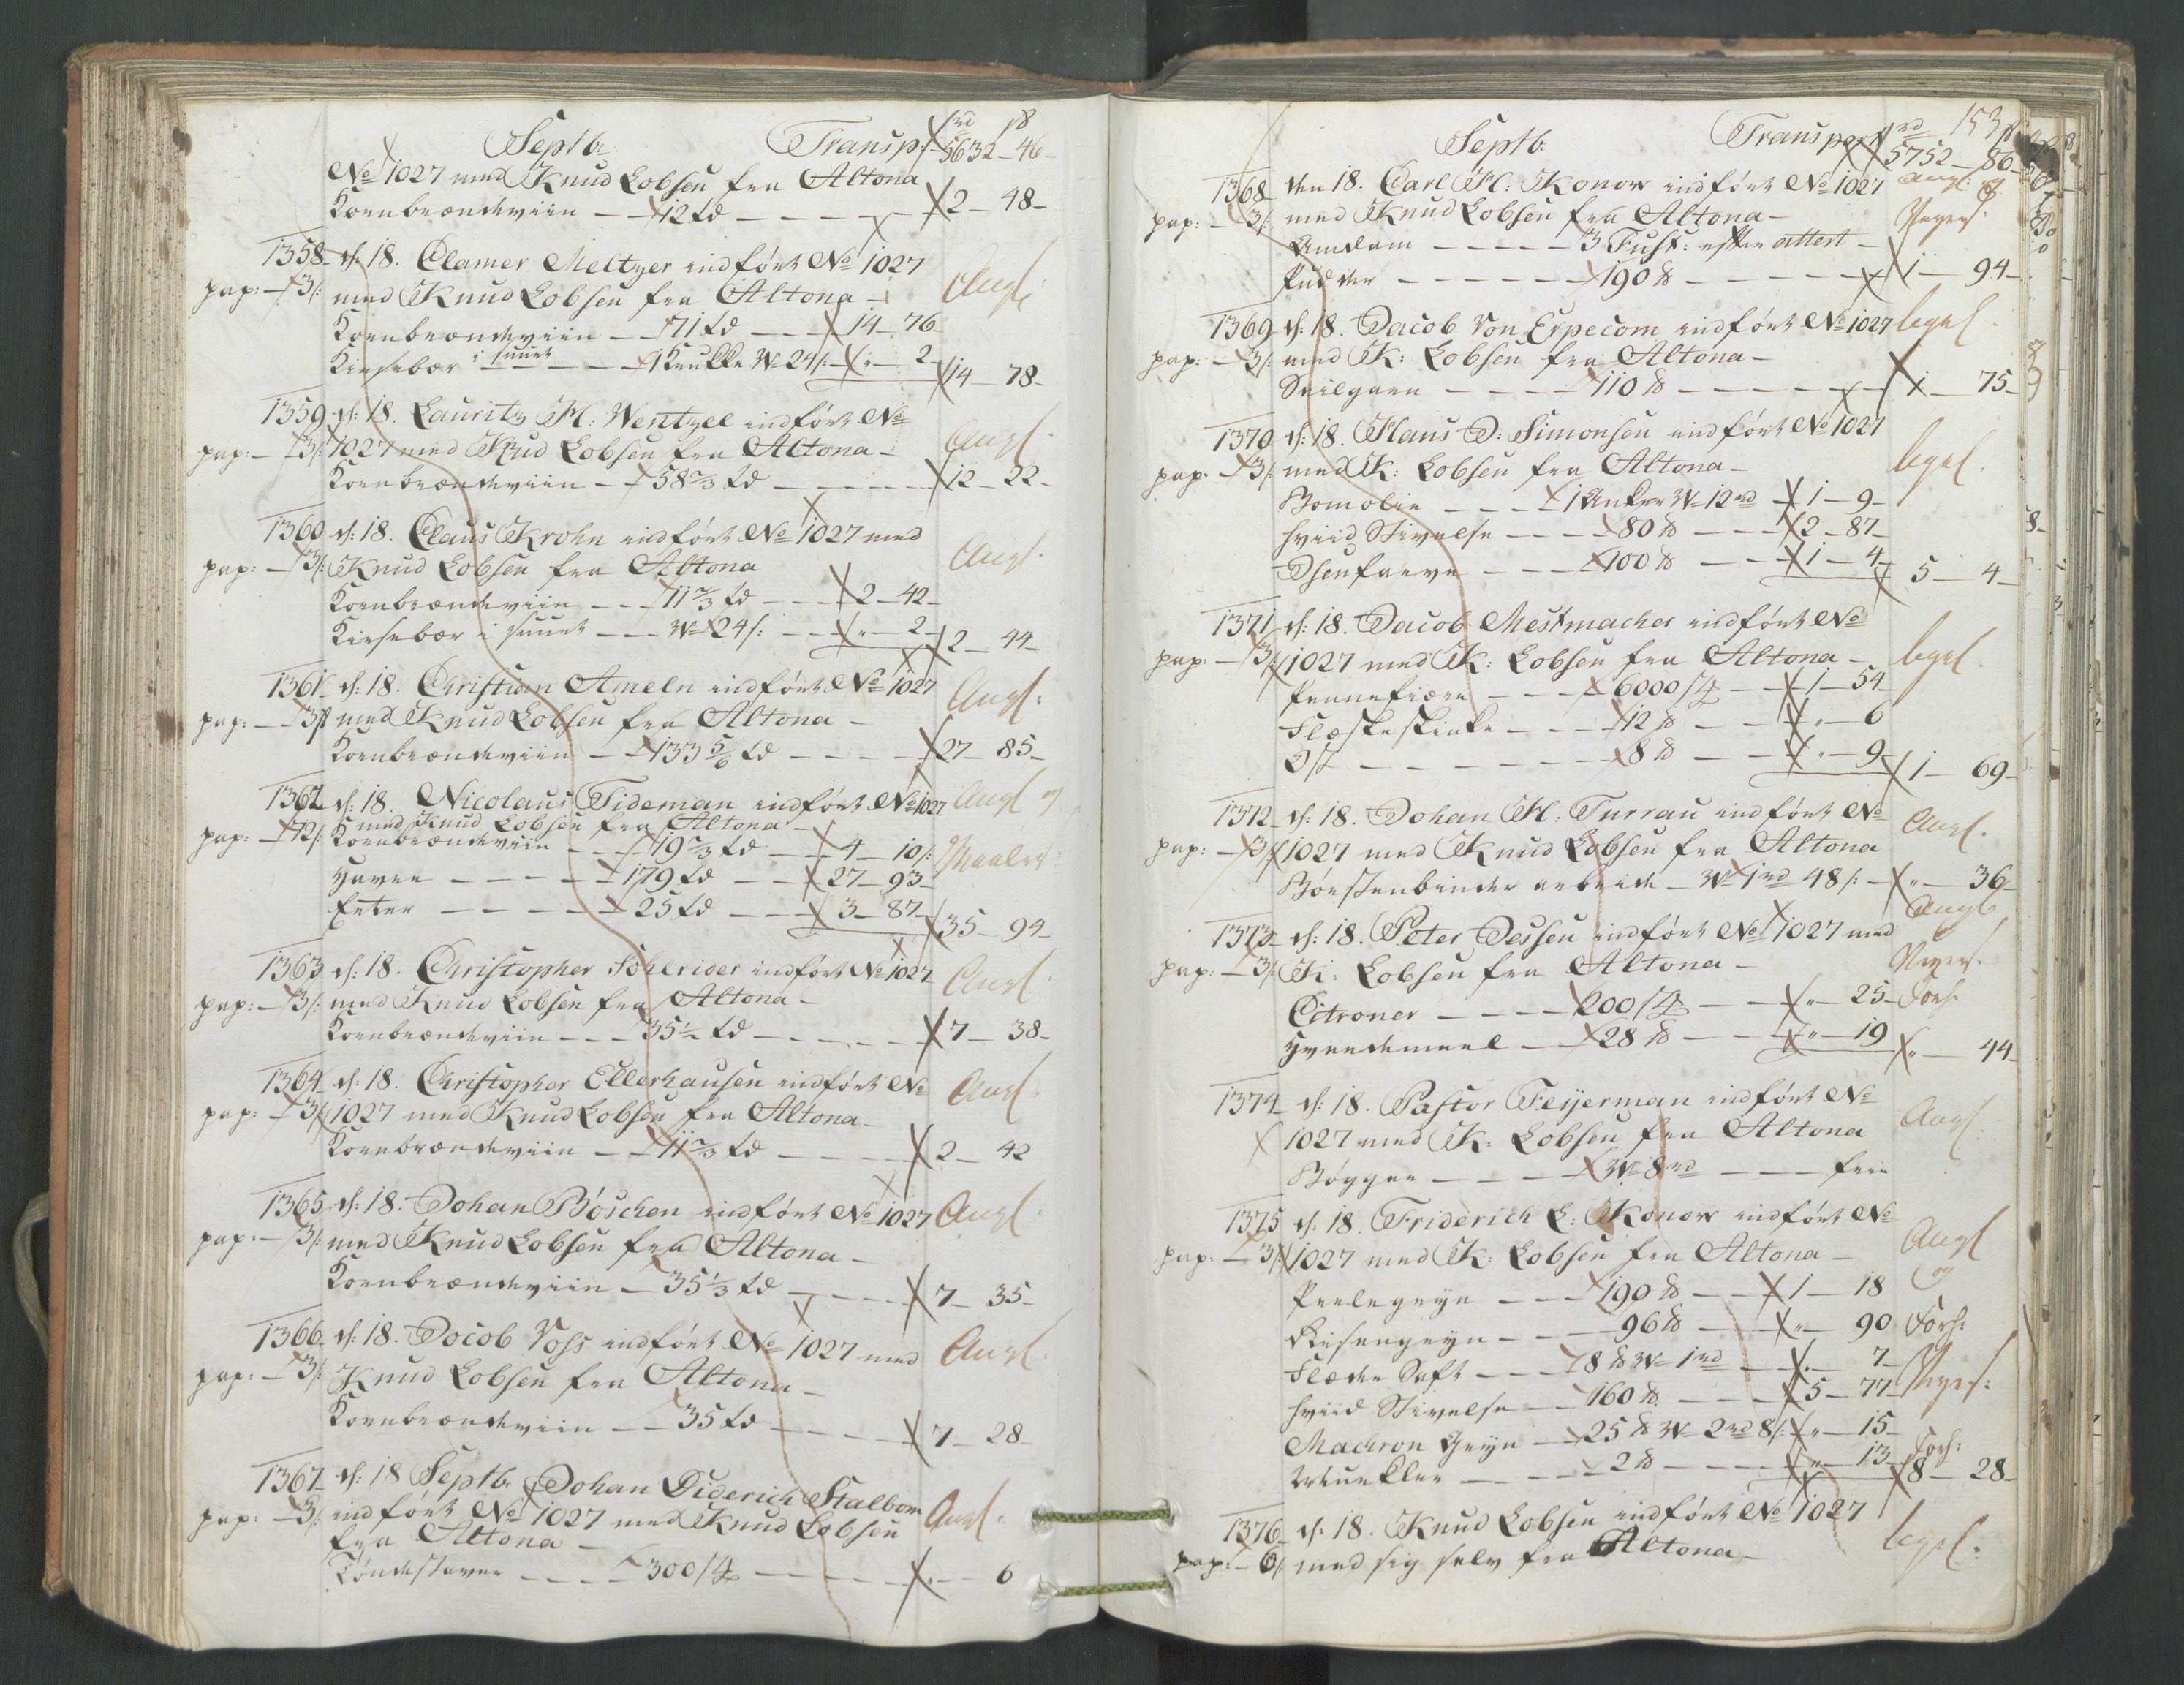 Septb. Transp: rd ß
5632 – 46 –
No 1027 med Knud Lobsen fra Altona
Kornbrændeviin – – 12 td – – – – 2 – 48 –
1358 d: 18. Clamer Meltzer indført No 1027
pap: – 3/: med Knud Lobsen fra Altona –
Kornbrændeviin – – 71 td – – – 14 – 76
Kirsebær i suuet – – – 1 Krukke W 24/: – " – 2 – 14 – 78 –
1359 d: 18. Lauritz H: Wentzel indført No
pap: – 3/: 1027 med Knud Lobsen fra Altona –
Kornbrændeviin – – 58 2/3 td – – – – 12 – 22 –
1360 d: 18. Claus Krohn indført No 1027 med
pap: – 3/: Knud Lobsen fra Altona
Kornbrændeviin – – 11 2/3 td – – – 2 – 42 –
Kirsebær i suuet – – – W 24/: – – " – 2 – 2 – 44 –
1361 d: 18. Christian Ameln indført No 1027
pap: – 3ß med Knud Lobsen fra Altona –
Kornbrændeviin – – 133 5/6 td – – – – 27 – 85 –
1362 d: 18. Nicolaus Tideman indført No 1027
med Knud Lobsen fra Altona –
pap: – 12/: Kornbrændeviin – – 19 2/3 td – – 4 – 10/:
Havre – – – – – 179 td – – 27 – 93 –
Erter – – – – – 25 td – – – 3 – 87 – 35 – 94 –
1363 d: 18. Christopher Schlrider indført No 1027
pap: – 3/: med Knud Lobsen fra Altona –
Kornbrændeviin – – – 35 1/2 td – – – – 7 – 38 –
1364 d: 18. Christopher Ellerhausen indført No
pap: – 3/: 1027 med Knud Lobsen fra Altona –
Kornbrændeviin – – 11 2/3 td – – – – 2 – 42
1365 d: 18. Johan Böschen indført No 1027
pap: – 3/: med Knud Lobsen fra Altona –
Kornbrændeviin – 35 1/3 td – – – – 7 – 35 –
1366 d: 18. Jocob Voss indført No 1027 med
pap: – 3/: Knud Lobsen fra Altona –
Kornbrændeviin – – 35 td – – – – 7 – 28 –
1367 d: 18 Septb. Johan Diderich Stalbom
pap: – 3/: indført No 1027 med Knud Lobsen
fra Altona –
Tøndestaver – – – – 300 St – – – – " – 6
153
Septb. Transport rd ß
5752 – 86
1368 den 18. Carl H: Konow indført No 1027
pap: – 3/: med Knud Lobsen fra Altona –
Amdam – – – – – 3 Fust: efter attest –
Pudder – – – – – – 190 ℔ – – – – – 1 – 94 –
1369 d: 18. Jacob Von Erpecom indført No 1027
pap: – 3/: med K: Lobsen fra Altona –
Seilgarn – – – – – 110 ℔ – – – – – – 1 – 75 –
1370 d: 18. Hans D: Simonsen indført No 1027
pap: – 3/: med K: Lobsen fra Altona –
Bomolie – – – 1 Anker W 12 rd 1 – 9 –
Hviid Stivelse – – – – 80 ℔ – – – 2 – 87 –
Jsenfarve – – – – 100 ℔ – – 1 – 4 – 5 – 4 –
1371 d: 18. Jacob Mestmacher indført No
pap: – 3/: 1027 med K: Lobsen fra Altona –
Pennefiære – – – – 6000 St – – 1 – 54
Flæskeskinke – – – 12 ℔ – – " – 6
Ost – – – – – – – 8 ℔ – – " – 9 – 1 – 69 –
1372 d: 18. Johan H: Turrau indført No
pap: – 3/: 1027 med Knud Lobsen fra Altona
Børstenbinder arbeide – W 1 rd 48/: – " – 36 –
1373 d: 18. Peter Jessen indført No 1027 med
pap: – 3/: K: Lobsen fra Altona –
Citroner – – – – 200 St – – " – 25 –
Hvedemeel – – 28 ℔ – – " – 19 " – 44 –
1374 d: 18. Pastor Feijerman indført No
1027 med K: Lobsen fra Altona
Bøgger – – – – W 8 rd – – – – frie
1375 d: 18. Friderich L: Konow indført No
pap: – 3/: 1027 med K: Lobsen fra Altona –
Perlegryn – – – 190 ℔ – – 1 – 18
Risengryn – – – – 96 ℔ – – " – 90
Flæder Saft – – – 8 ℔ W 1 rd – – " – 7 –
Hviid Stivelse – – 160 ℔ – – – 5 – 77
Machron Gryn – – 25 ℔ W 2 rd 8/: " – 15 –
– – – – 2 ℔ – – – – " – 13 – 8 – 28 –
1376 d: 18. Knud Lobsen indført No 1027
pap: – 6/: med sig selv fra Altona –